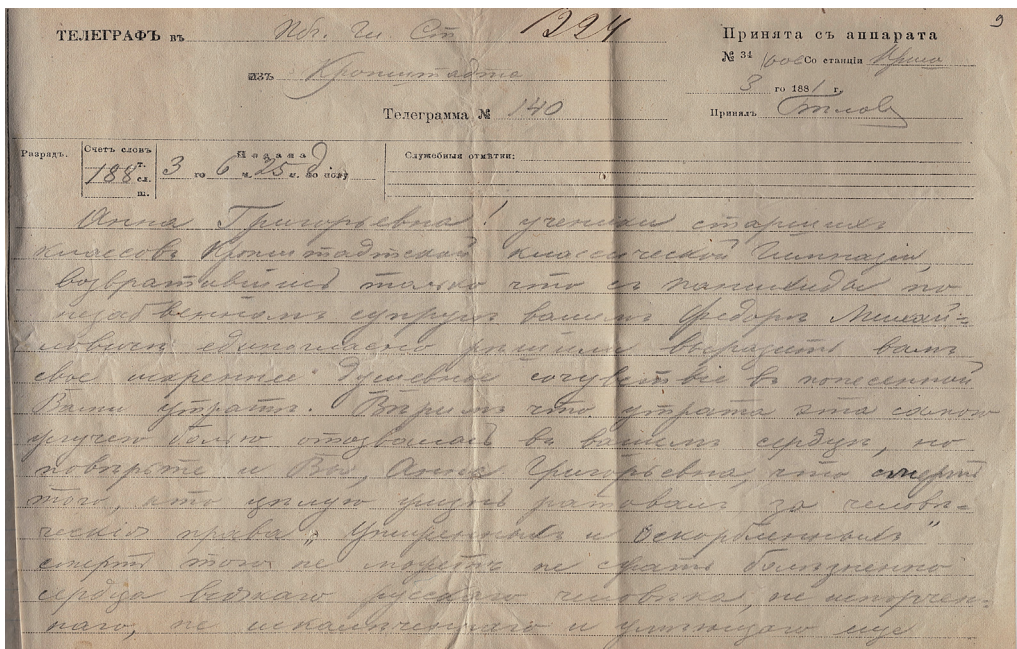 9
ТЕЛЕГРАФЪ въ Пбг. Гл. Ст
1224
Принята съ аппарата
№ 34 Со станціи
изъ Кронштадта
3 го 1881 г.
Телеграмма № 140
Принялъ
Разрядъ.
Счетъ словъ
188 т. сл. ш.
Подана
3 го 6 ч. 25 м. по полу д
Служебныя отмѣтки:
Анна Григорьевна! ученики старшихъ
классовъ Кронштадтской классической Гимназіи,
возвратившись только что съ панихиды по
незабвенномъ супругѣ вашемъ Федорѣ Михай=
ловичѣ единогласно рѣшили выразить вамъ
свое искреннее душевное сочувствіе въ понесенной
Вами утратѣ. Вѣримъ что утрата эта самою
жгучею болью отозвалась въ вашемъ сердцѣ, но
повѣрьте и Вы, Анна Григорьевна, что смерть
того, кто цѣлую жизнь ратовалъ за человѣ=
ческія права „Униженныхъ и Оскорбленныхъ"
смерть того не можетъ не сжать болѣзненно
сердца всякаго русскаго человѣка, не испорчен=
наго, не искалѣченнаго и умѣющаго еще